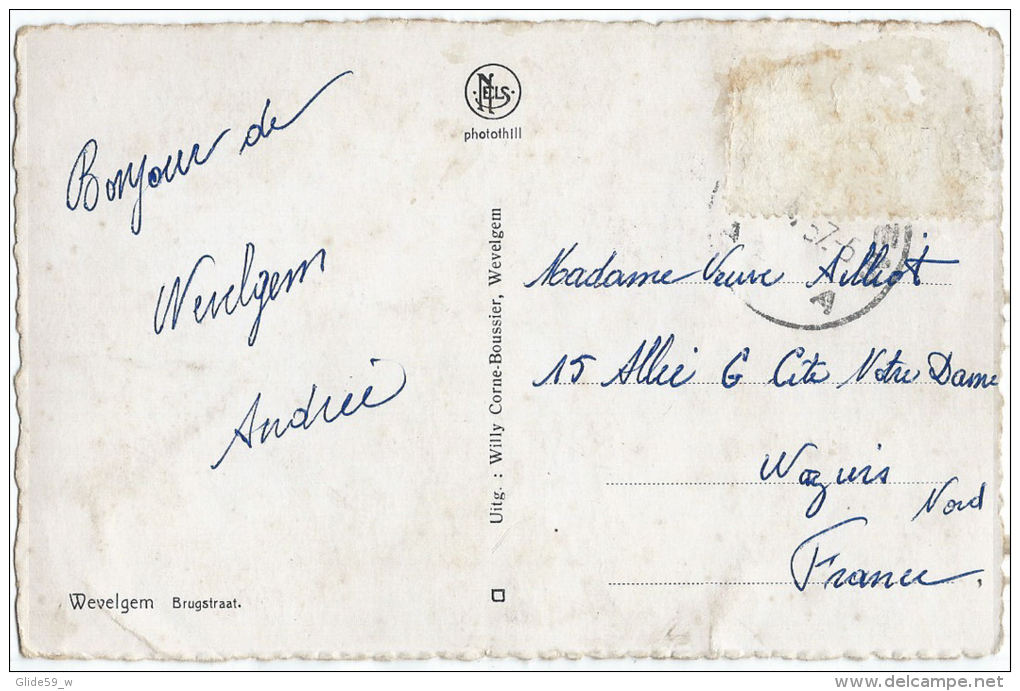 Bonjour de
Wevelgem
Andrée
NELS
photothill
Uitg. : Willy Corne-Boussier, Wevelgem
57-6
A
A
Madame Veuve Ailliot
15 Allée G Cité Notre Dame
Waziers
Nord
France.
Wevelgem Brugstraat.
Glide59_w
delcampe.net